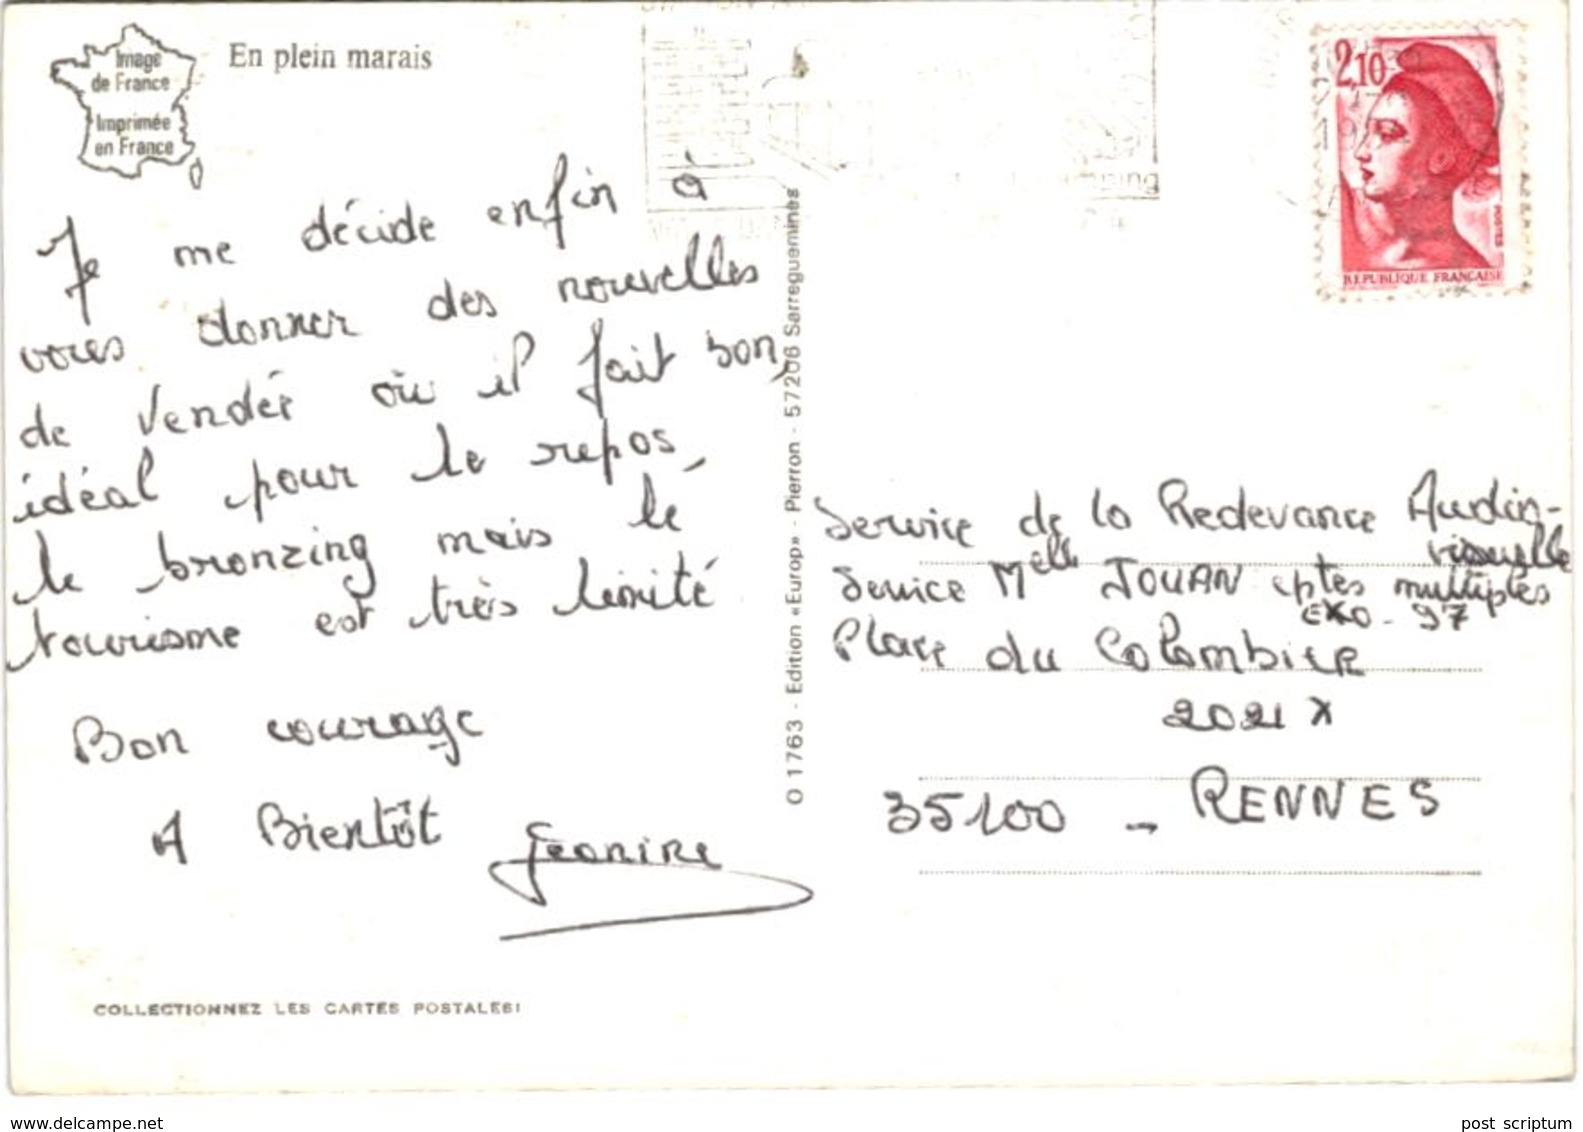 Image
de France
Imprimée
en France
En plein marais
Je me décide enfin à
vous donner des nouvelles
de Vendée où il fait bon,
idéal pour le repos,
le bronzing mais le
tourisme est très limité
Bon courage
A Bientôt
COLLECTIONNEZ LES CARTES POSTALES!
O 1763 - Edition «Europ» - Pierron - 57206 Sarreguemines
2,10
POSTES
REPUBLIQUE FRANÇAISE
Service de la Redevance Audio-
visuelle
Service Melle JOUAN cptes multiples
EXO - 97
Place du Colombier
2021 X
35100 - RENNES
www.delcampe.net
post scriptum